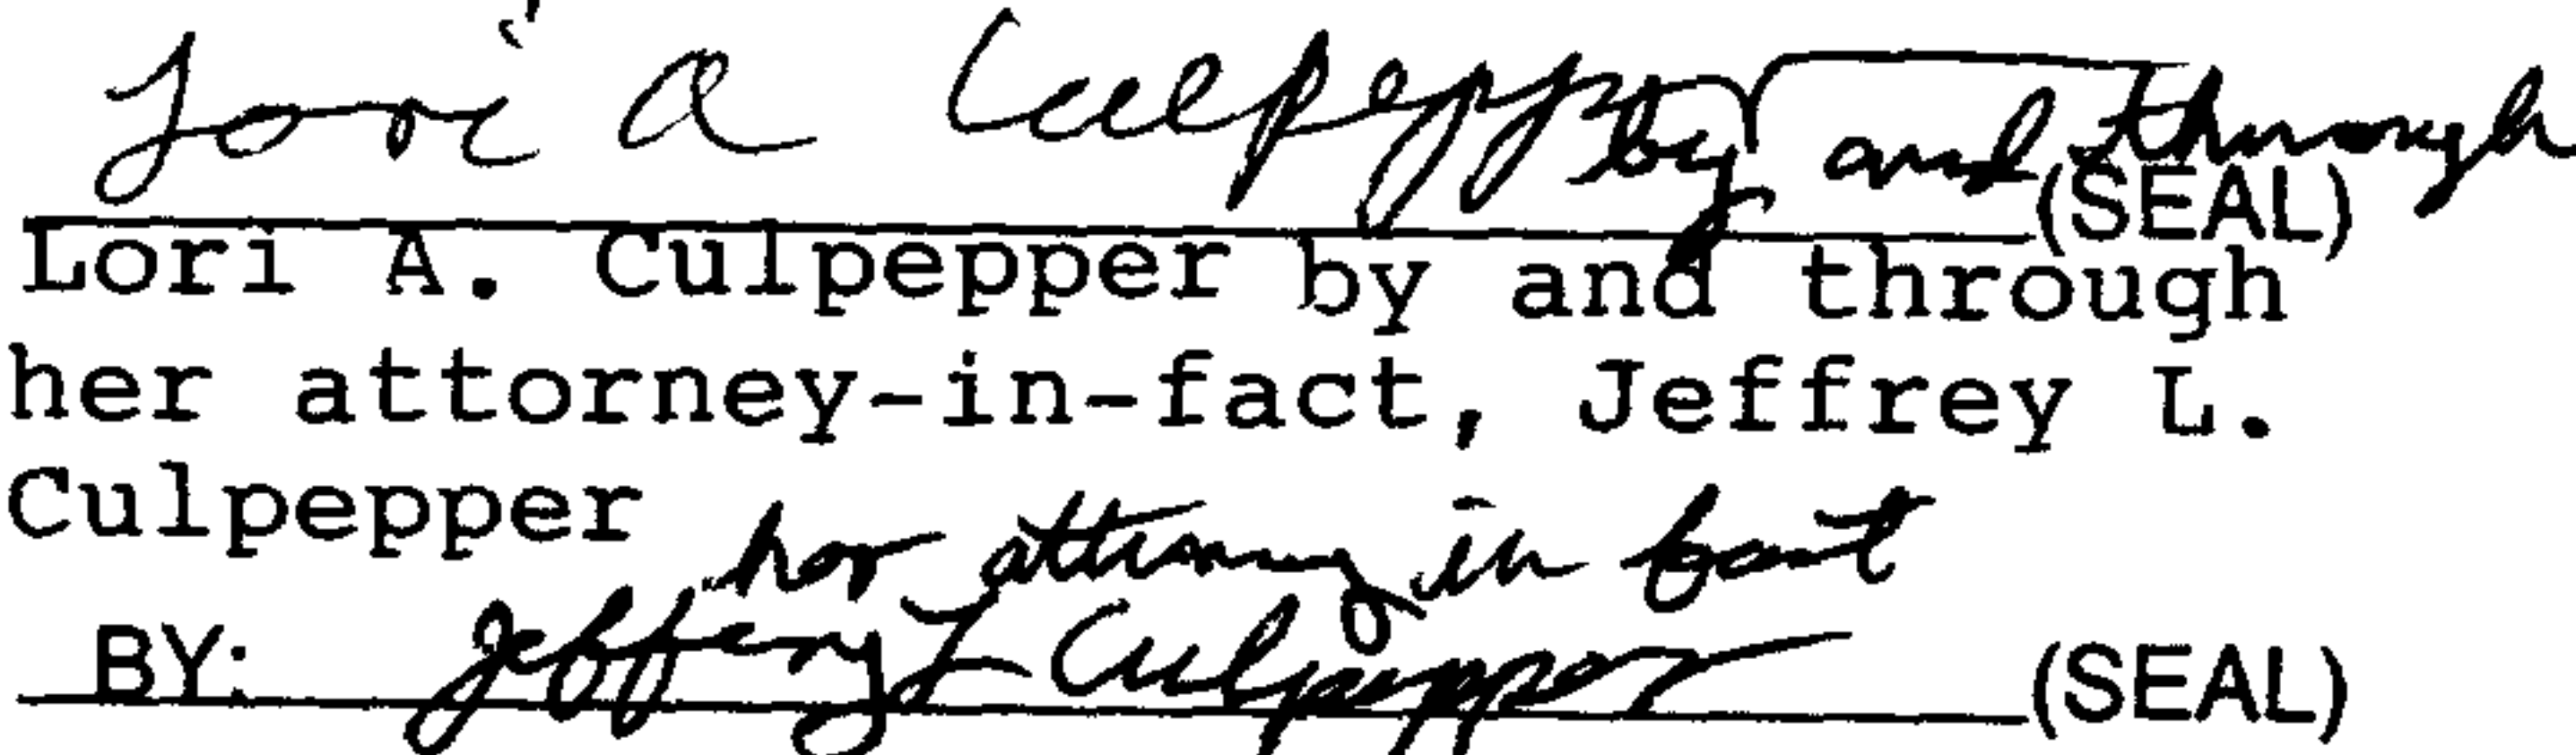 Lori A Culpepper by and through
(SEAL)
Lori A. Culpepper by and through
her attorney-in-fact, Jeffrey L.
Culpepper
her attorney in fact
BY: Jeffery L Culpepper (SEAL)